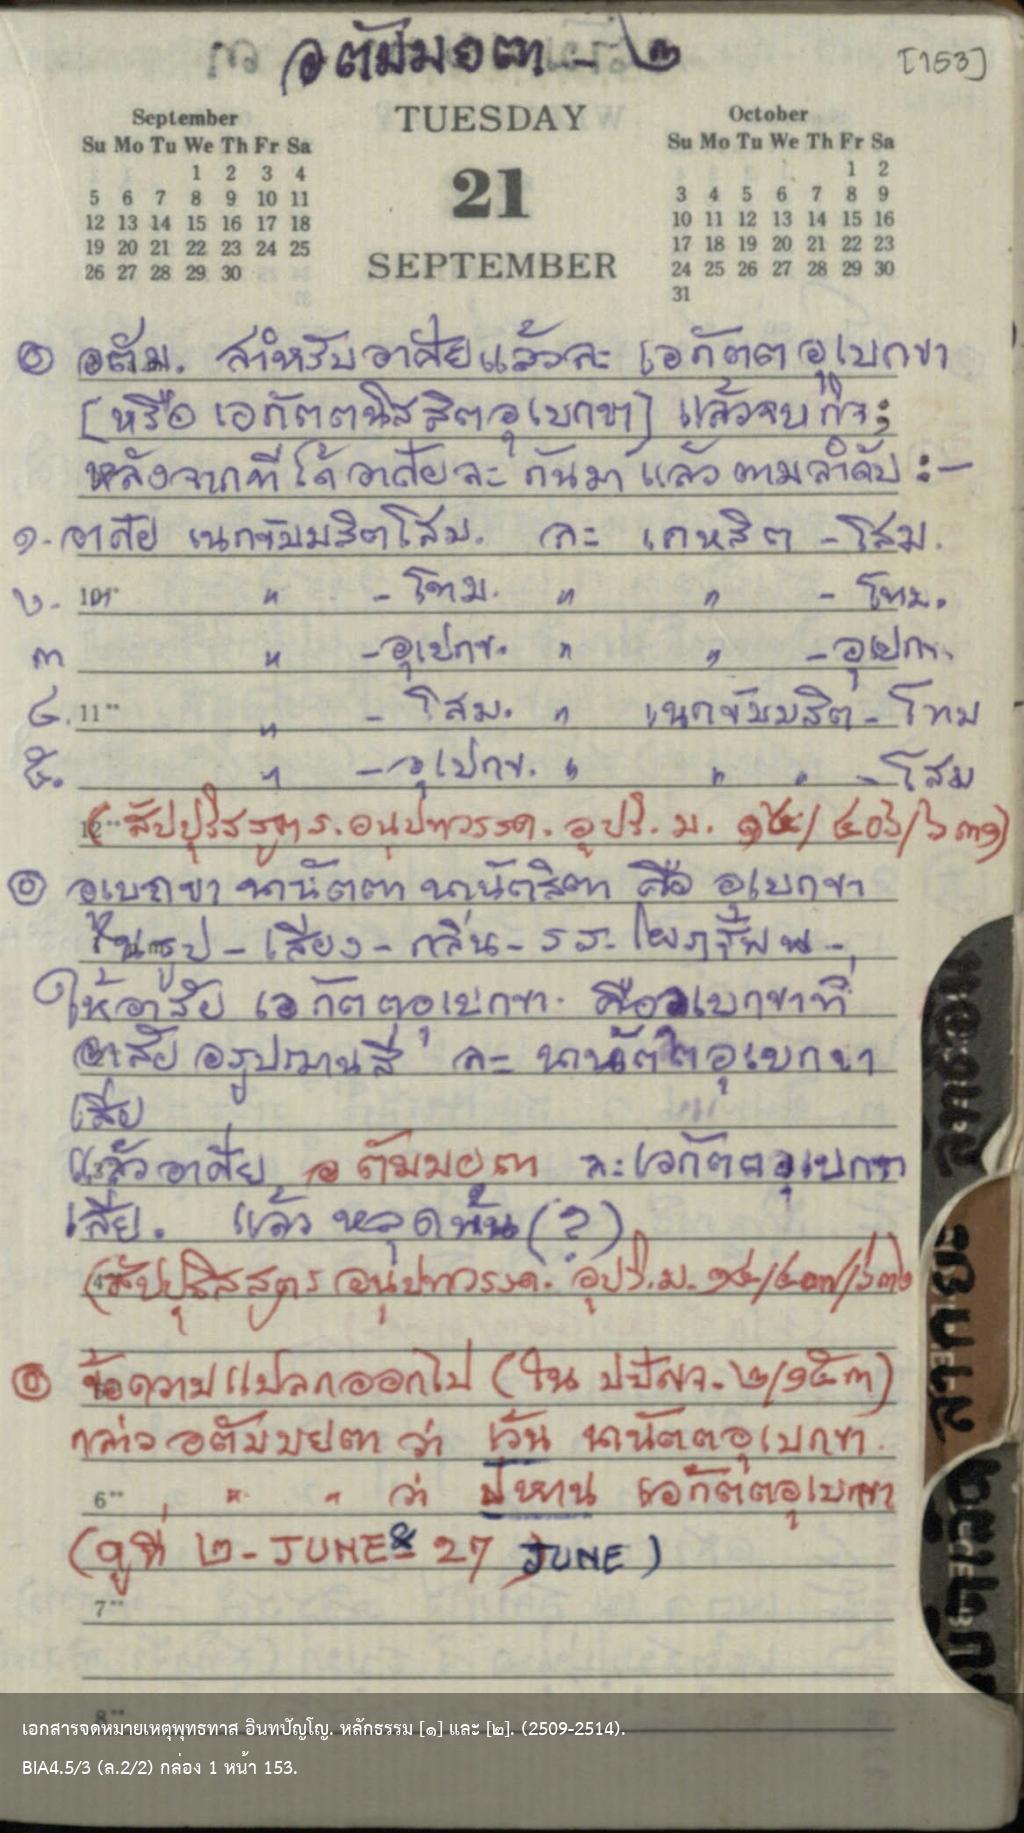 อตัมมยตา - ๒
[153]
September
Su Mo Tu We Th Fr Sa
1 2 3 4
5 6 7 8 9 10 11
12 13 14 15 16 17 18
19 20 21 22 23 24 25
26 27 28 29 30
TUESDAY
21
SEPTEMBER
October
Su Mo Tu We Th Fr Sa
1 2
3 4 5 6 7 8 9
10 11 12 13 14 15 16
17 18 19 20 21 22 23
24 25 26 27 28 29 30
31
อตัม. สำหรับอาศัยแล้วละ เอกัตตอุเบกขา
[หรือ เอกัตตนิสสิตอุเบกขา] แล้วจบกิจ;
หลังจากที่ได้อาศัยละ กันมา แล้ว ตามลำดับ :—
๑. อาศัย เนกขัมมสิตโสม. ละ เคหสิต - โสม.
๒. 10 " - โทม. " " - โทม.
๓ " - อุเปกข. " " - อุเปกข.
๔. 11 " - โสม. " เนกขัมมสิต - โทม
๕. " - อุเปกข. " " " - โสม
12 (สัปปุริสสูตร. อนุปทวรรค. อุปริ. ม. ๑๔/๔๐๖/๖๓๑)
อุเบกขา นานัตตา นานัตสิตา คือ อุเบกขา
ในรูป - เสียง - กลิ่น - รส -
ให้อาศัย เอกัตตอุเบกขา. คืออุเบกขาที่
อาศัย อรูปฌานสี่ ละ นานัตตอุเบกขา
เสีย
แล้วอาศัย อตัมมยตา ละเอกัตตอุเบกขา
เสีย. แล้ว หลุดพ้น (?)
(สัปปุริสสูตร อนุปทวรรค. อุปริ. ม. ๑๔/๔๐๗/๖๓๒
ข้อความแปลกออกไป (ใน ปปัญจ. ๒/๑๕๓)
กล่าว อตัมมยตา ว่า เว้น นานัตตอุเบกขา.
6 " " ว่า ปหาน เอกัตตอุเบกขา
(ดูที่ ๒ - JUNE & 27 JUNE)
7
8
เอกสารจดหมายเหตุพุทธทาส อินทปัญโญ. หลักธรรม [๑] และ [๒]. (2509-2514).
BIA4.5/3 (ล.2/2) กล่อง 1 หน้า 153.